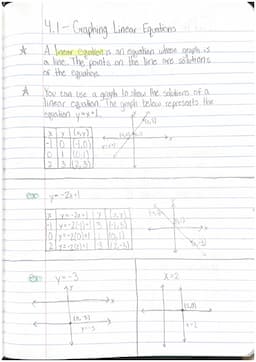 4.1 - Graphing Linear Equations
A linear equation is an equation whose graph is
a line. The points on the line are solutions
of the equation.
You can use a graph to show the solutions of a
linear equation. The graph below represents the
equation y=x+1.
x y (x,y)
-1 0 (-1,0)
0 1 (0,1)
2 3 (2,3)
(2,3)
y=x+1
y=-2x+1
x y=-2x+1 y (x,y)
-1 y=-2(-1)+1 3 (-1,3)
0 y=-2(0)+1 1 (0,1)
2 y=-2(2)+1
y=-3
x=2
(0,-3)
y=-3
(2,0)
x=2